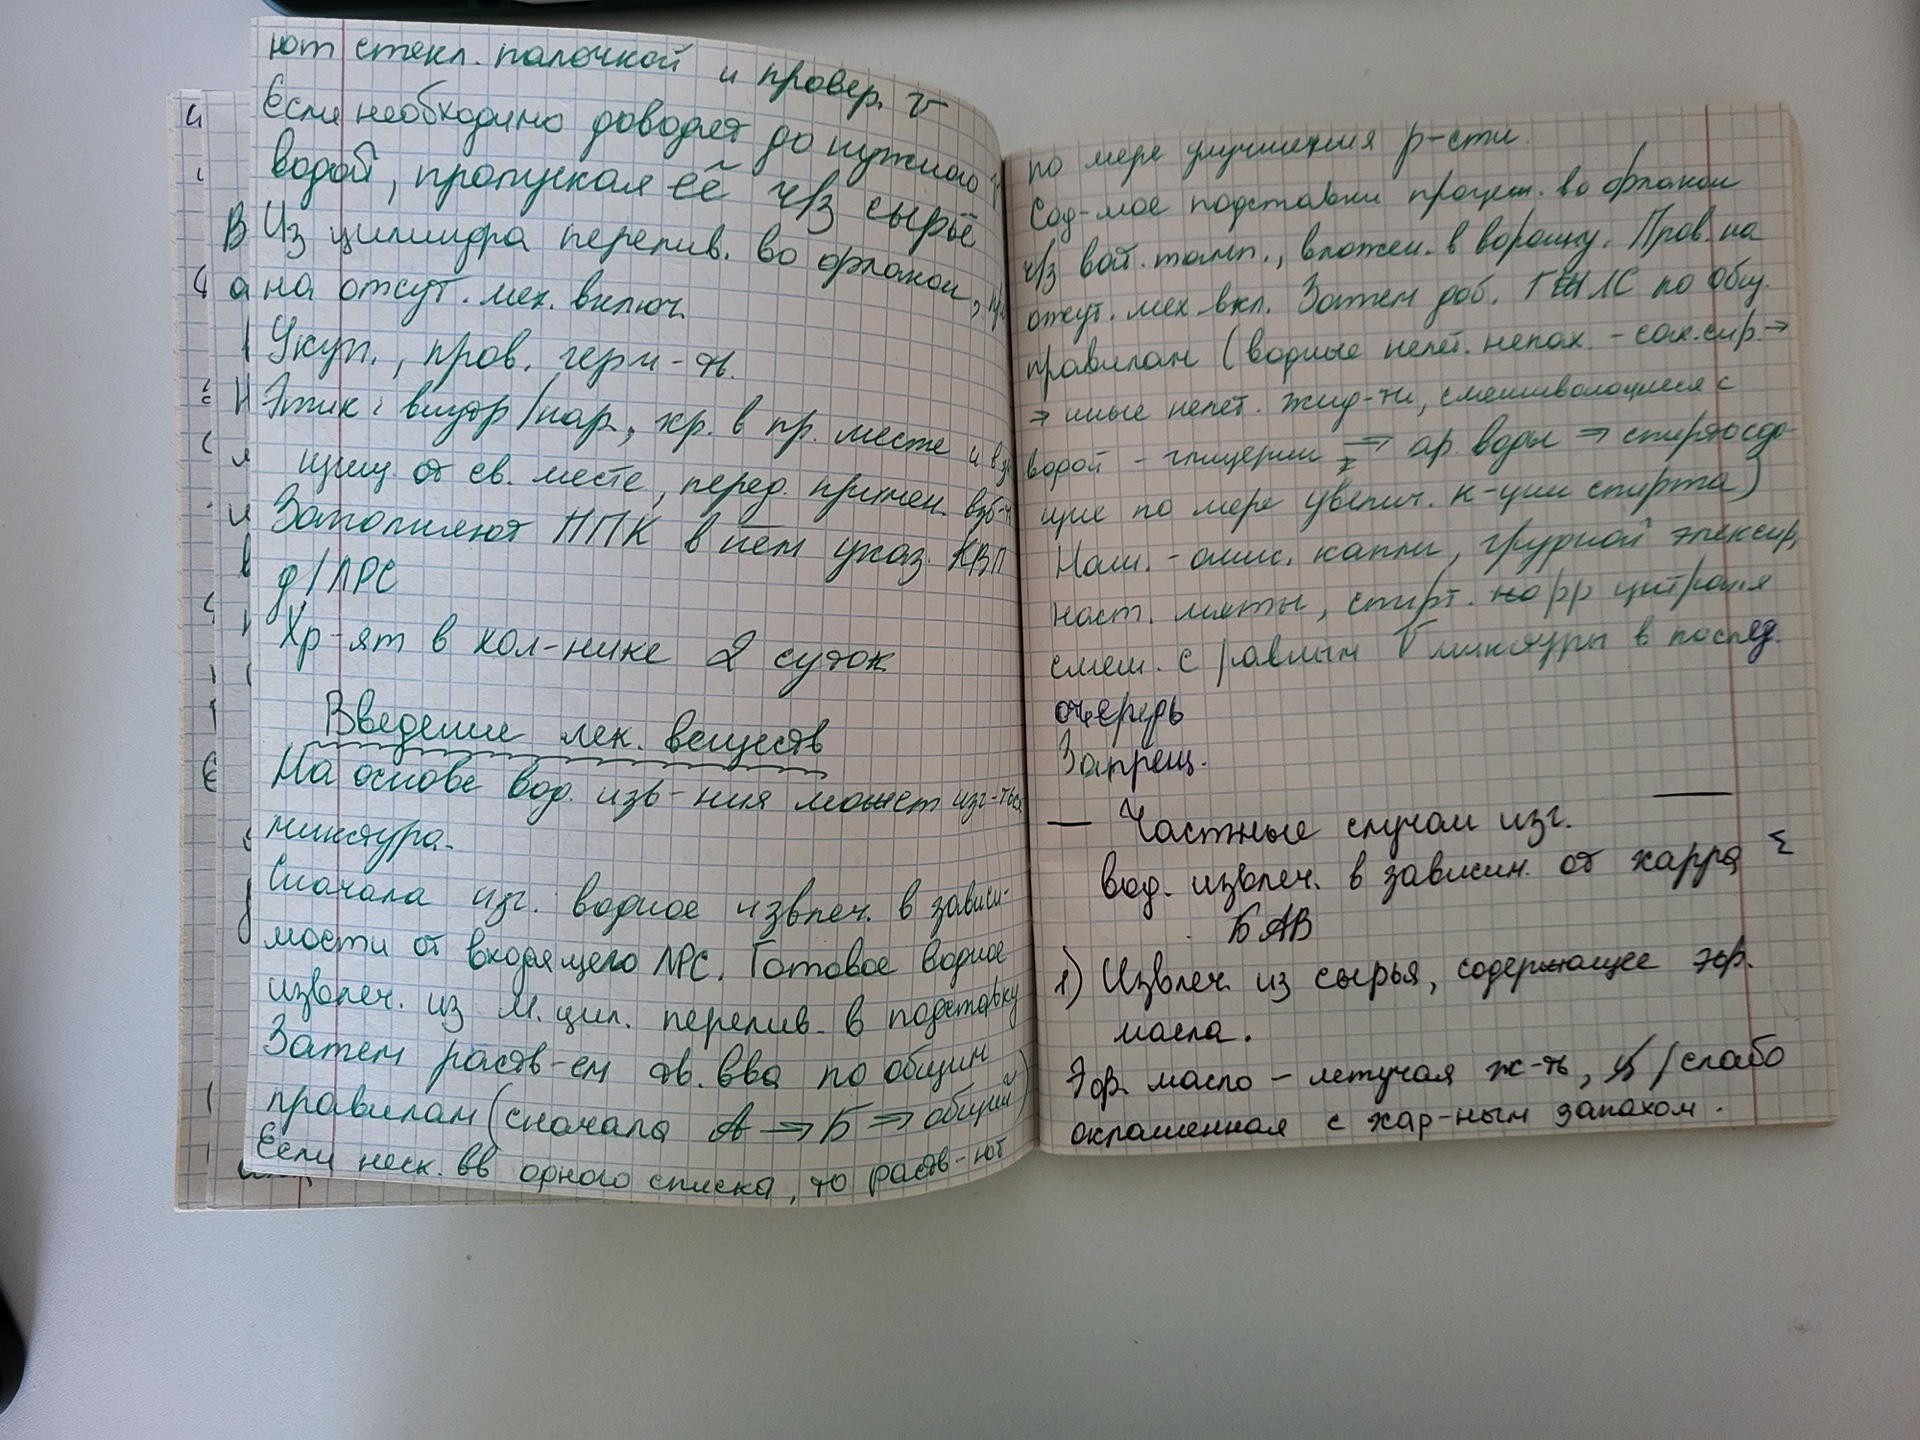 ют стекл. палочкой и провер. V
Если необходимо доводят до нужного
водой, пропуская её ч/з сырьё
Из цилиндра перелив. во флакон,
на отсут. мех. включ.
Укуп., пров. герм-ть.
Этик: внутр/нар., хр. в пр. месте и в
щищ. от св. месте, перед. примен. взб-ть
Заполняют ППК в нём указ. КВП
д/ЛРС
Хр-ят в хол-нике 2 суток
Введение лек. веществ
На основе вод. изв-ния может изг-ться
микстура.
Сначала изг. водное извлеч. в зависи-
мости от входящего ЛРС. Готовое водное
извлеч. из м. цил. перелив. в подставку
Затем раств-ем тв. вва по общим
правилам (сначала А → Б ⇒ общий)
Если неск. вв одного списка, то раств-ют
по мере улучшения р-сти.
Сод-мое подставки процеж. во флакон
ч/з ват. тамп., вложен. в воронку. Пров. на
отсут. мех. вкл. Затем доб. ГЖЛС по общ.
правилам (водные нелет. непах. - сах. сир. →
⇒ иные нелет. жид-ти, смешивающиеся с
водой - глицерин ⇒ ар. воды ⇒ спиртосод-
щие по мере увелич. к-ции спирта)
Наш. - анис. капли, грудной элексир,
наст. мяты, спирт. рр цитраля
смеш. с равным V микстуры в послед.
очередь
Запрещ.
— Частные случаи изг.
вод. извлеч. в зависим. от харра
БАВ
1) Извлеч. из сырья, содержающее эф.
масла.
Эф. масло - летучая ж-ть, б/слабо
окрашенная с хар-ным запахом.